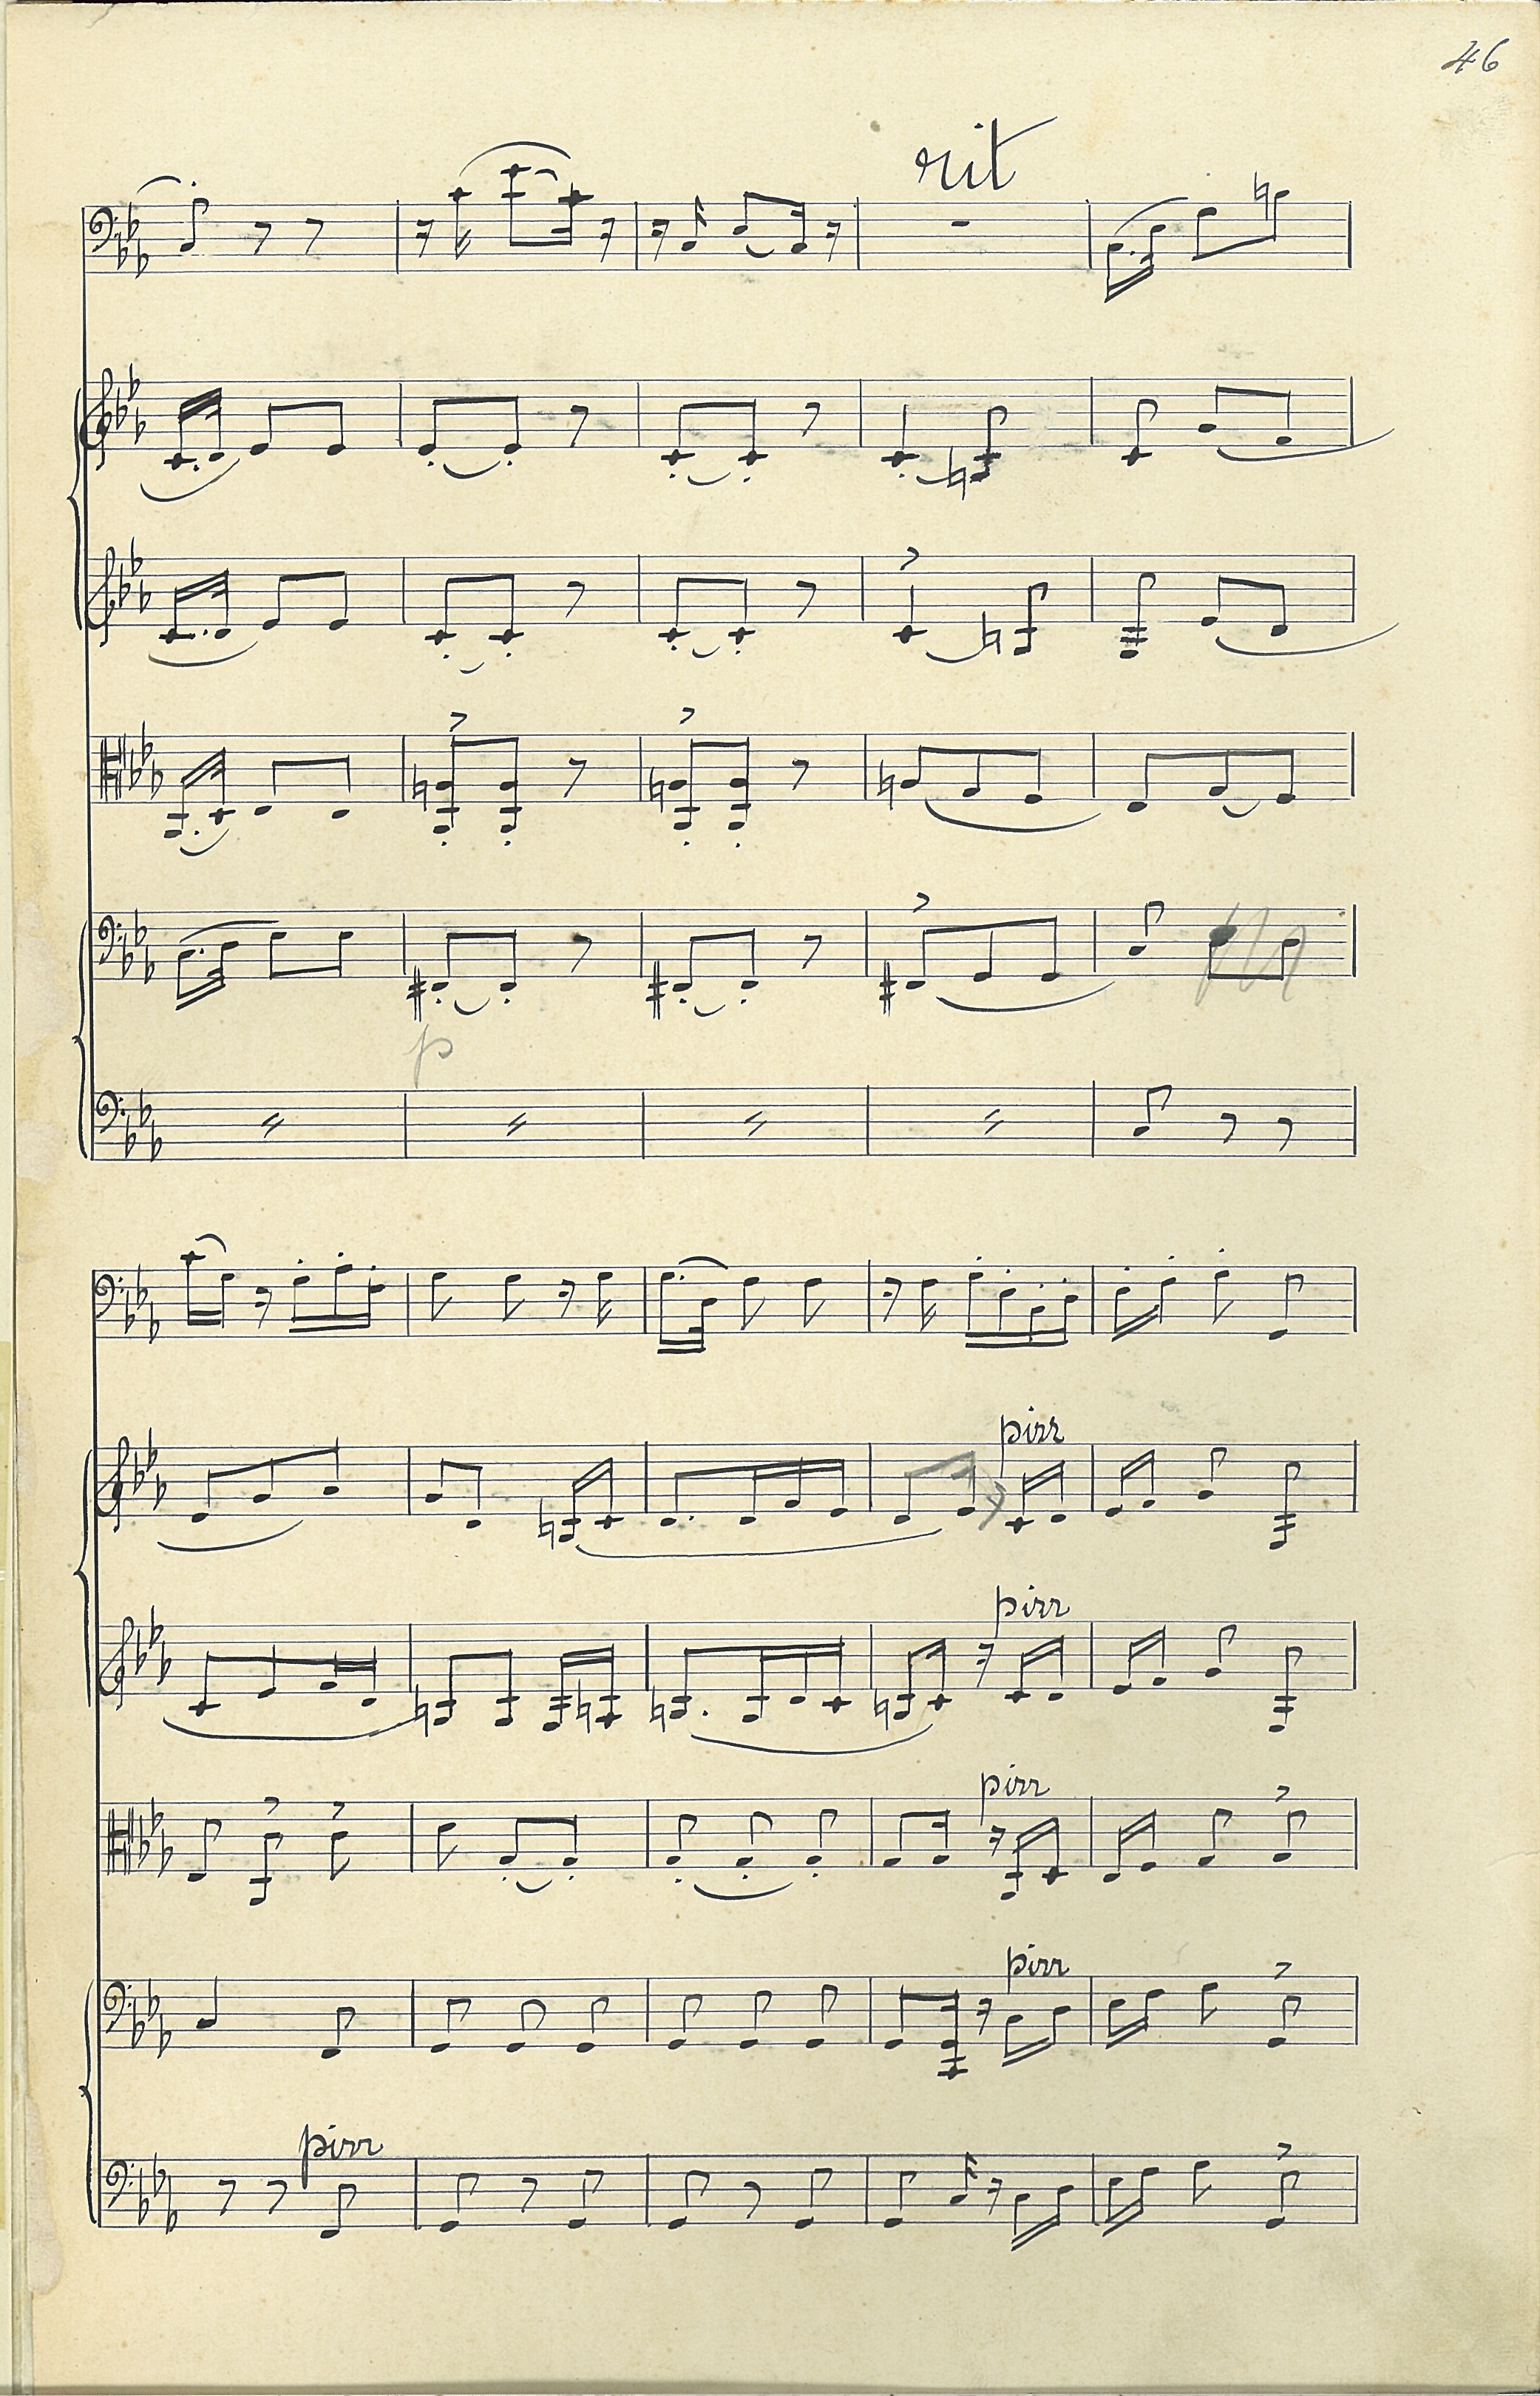 46
rit
p
pizz
pizz
pizz
pizz
pizz